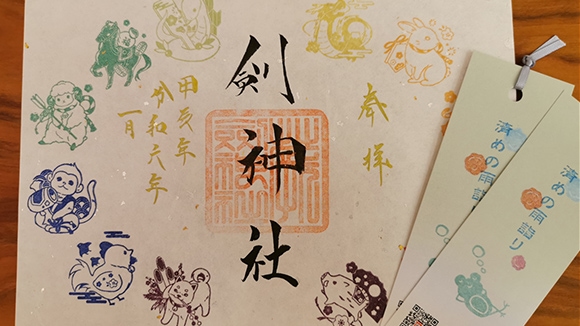 奉拝
剣神社
亥年
令和元年
一月
清めの雨詣り
清めの雨詣り